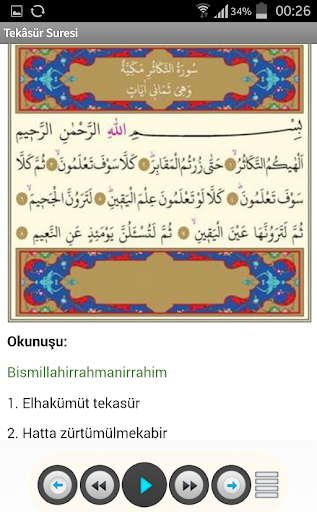 34% 00:26
Tekâsür Suresi
سُورَةُ التَّكَاثُرِ مَكِّيَّةٌ
وَهِيَ ثَمَانِي اٰيَاتٍ
بِسْــــمِ اللّٰهِ الرَّحْمٰنِ الرَّحٖيمِ
اَلْهٰيكُمُ التَّكَاثُرُۙ ١ حَتّٰى زُرْتُمُ الْمَقَابِرَؕ ٢ كَلَّا سَوْفَ تَعْلَمُونَۙ ٣ ثُمَّ كَلَّا
سَوْفَ تَعْلَمُونَؕ ٤ كَلَّا لَوْ تَعْلَمُونَ عِلْمَ الْيَقٖينِؕ ٥ لَتَرَوُنَّ الْجَحٖيمَۙ ٦
ثُمَّ لَتَرَوُنَّهَا عَيْنَ الْيَقٖينِۙ ٧ ثُمَّ لَتُسْـَٔلُنَّ يَوْمَئِذٍ عَنِ النَّعٖيمِ ٨
Okunuşu:
Bismillahirrahmanirrahim
1. Elhakümüt tekasür
2. Hatta zürtümülmekabir